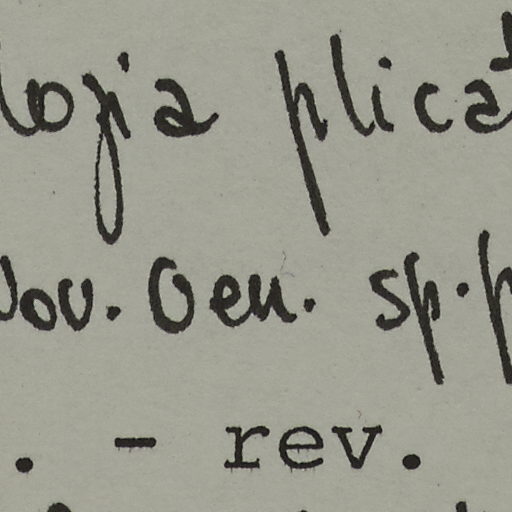 lozia plica
Nov. Gen. sp. p
. - rev.